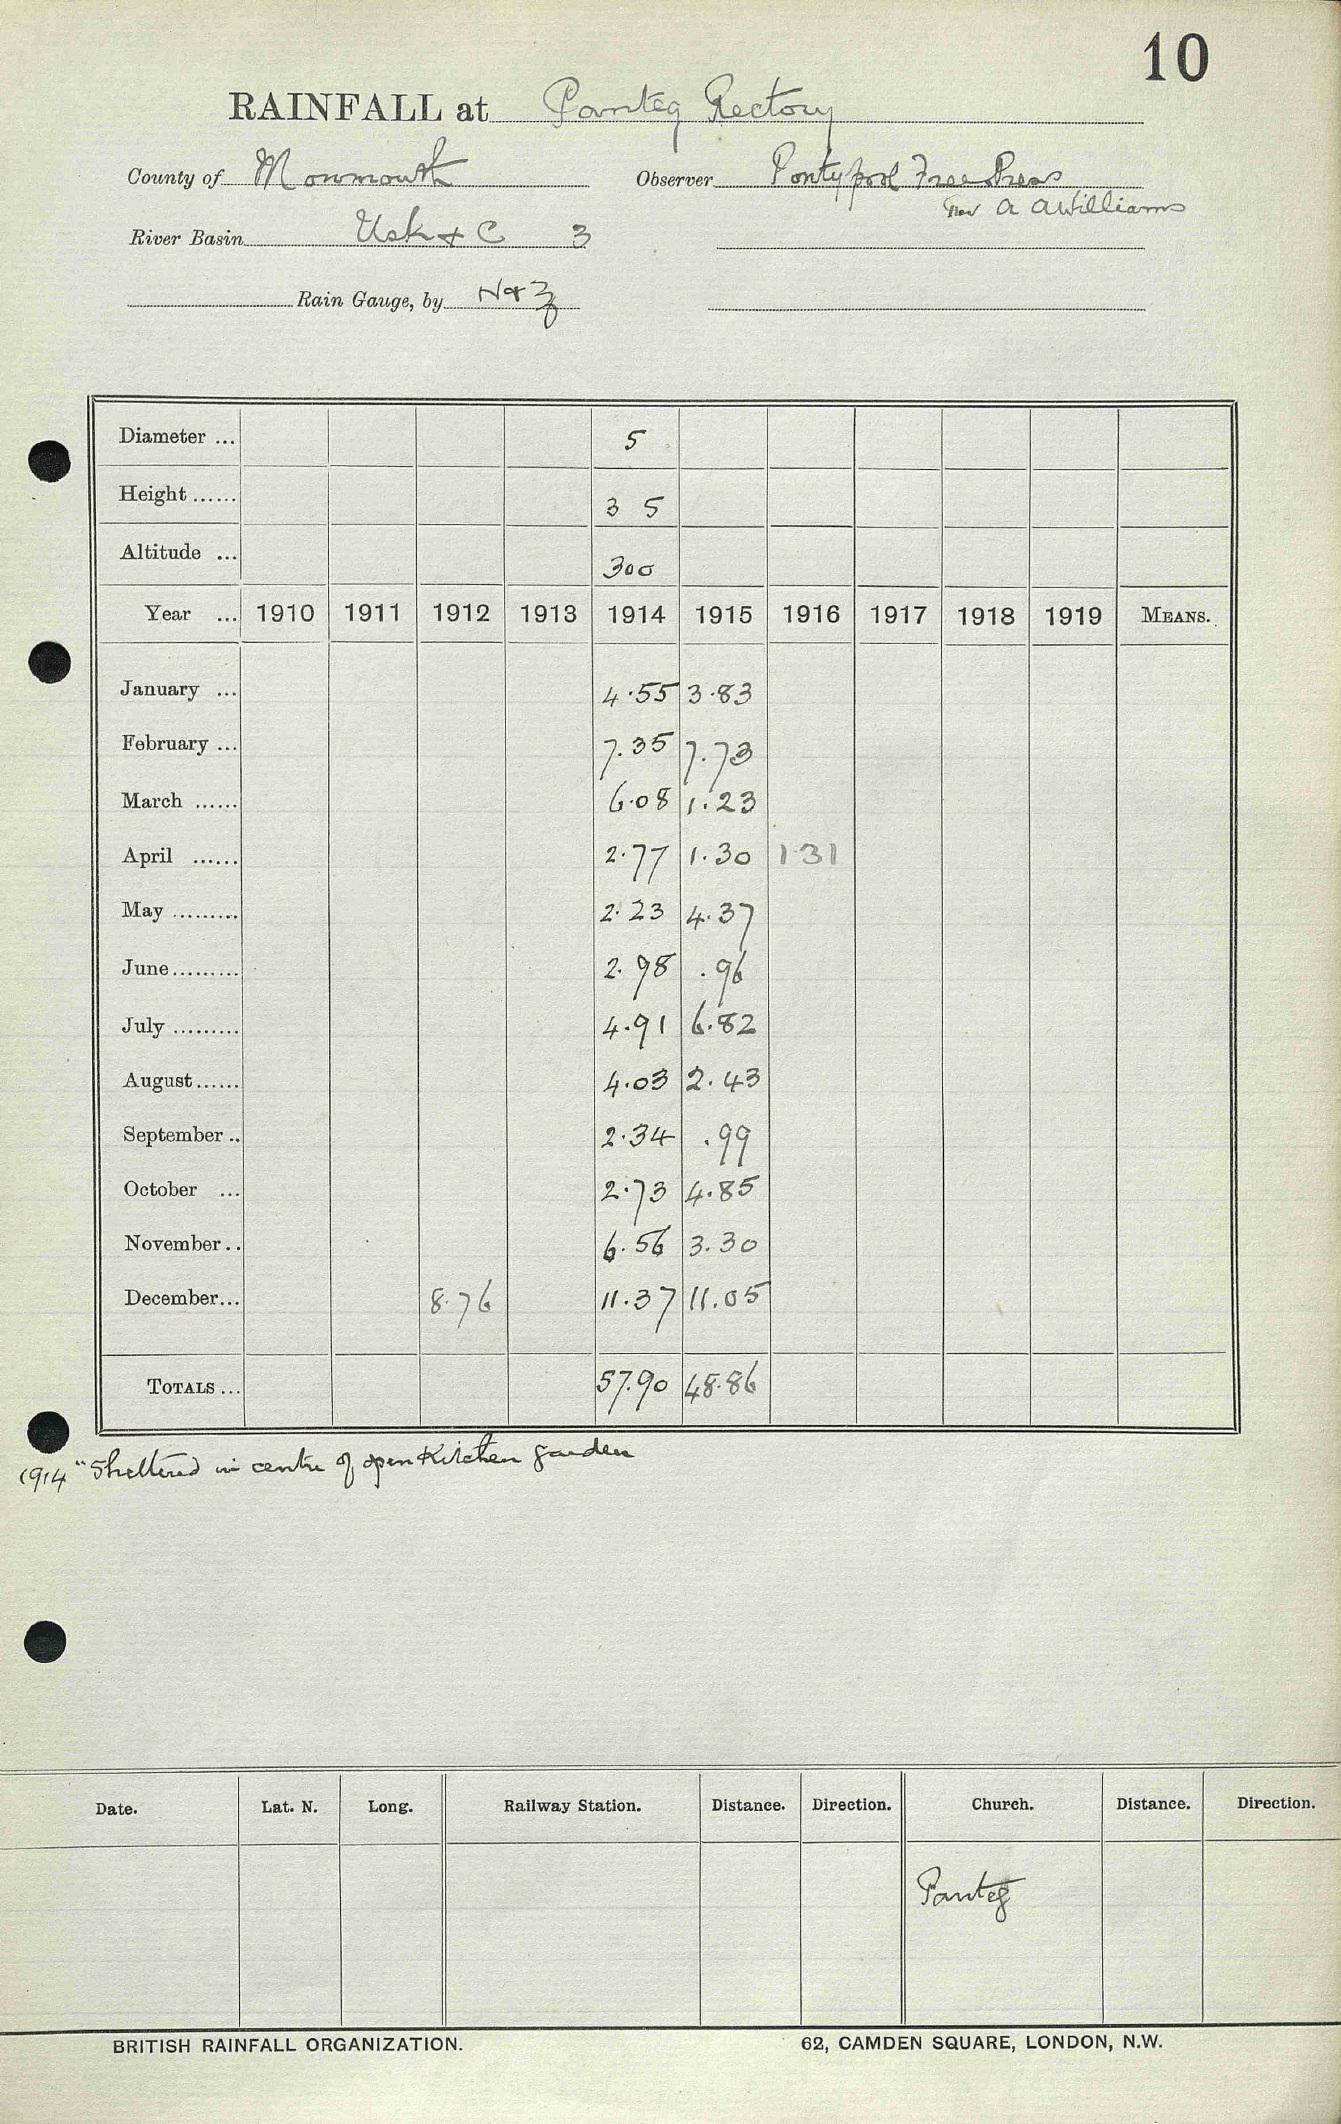 10
RAINFALL at Panteg Rectory
County of Monmouth Observer Pontypool Free Press
Rev A A Williams
River Basin Usk & C 3
Rain Gauge, by N & Z
Diameter ... 5
Height ...... 3 5
Altitude ... 300
Year ... 1910 1911 1912 1913 1914 1915 1916 1917 1918 1919 MEANS.
January ... 4.55 3.83
February ... 7.35 7.73
March ...... 6.08 1.23
April ...... 2.77 1.30 1.31
May ......... 2.23 4.37
June ......... 2.98 .96
July ......... 4.91 6.82
August ...... 4.03 2.43
September .. 2.34 .99
October ... 2.73 4.85
November .. 6.56 3.30
December ... 8.76 11.37 11.05
TOTALS ... 57.90 48.86
1914 "Sheltered in centre of open Kitchen garden
Date. Lat. N. Long. Railway Station. Distance. Direction. Church. Distance. Direction.
Panteg
BRITISH RAINFALL ORGANIZATION. 62, CAMDEN SQUARE, LONDON, N.W.